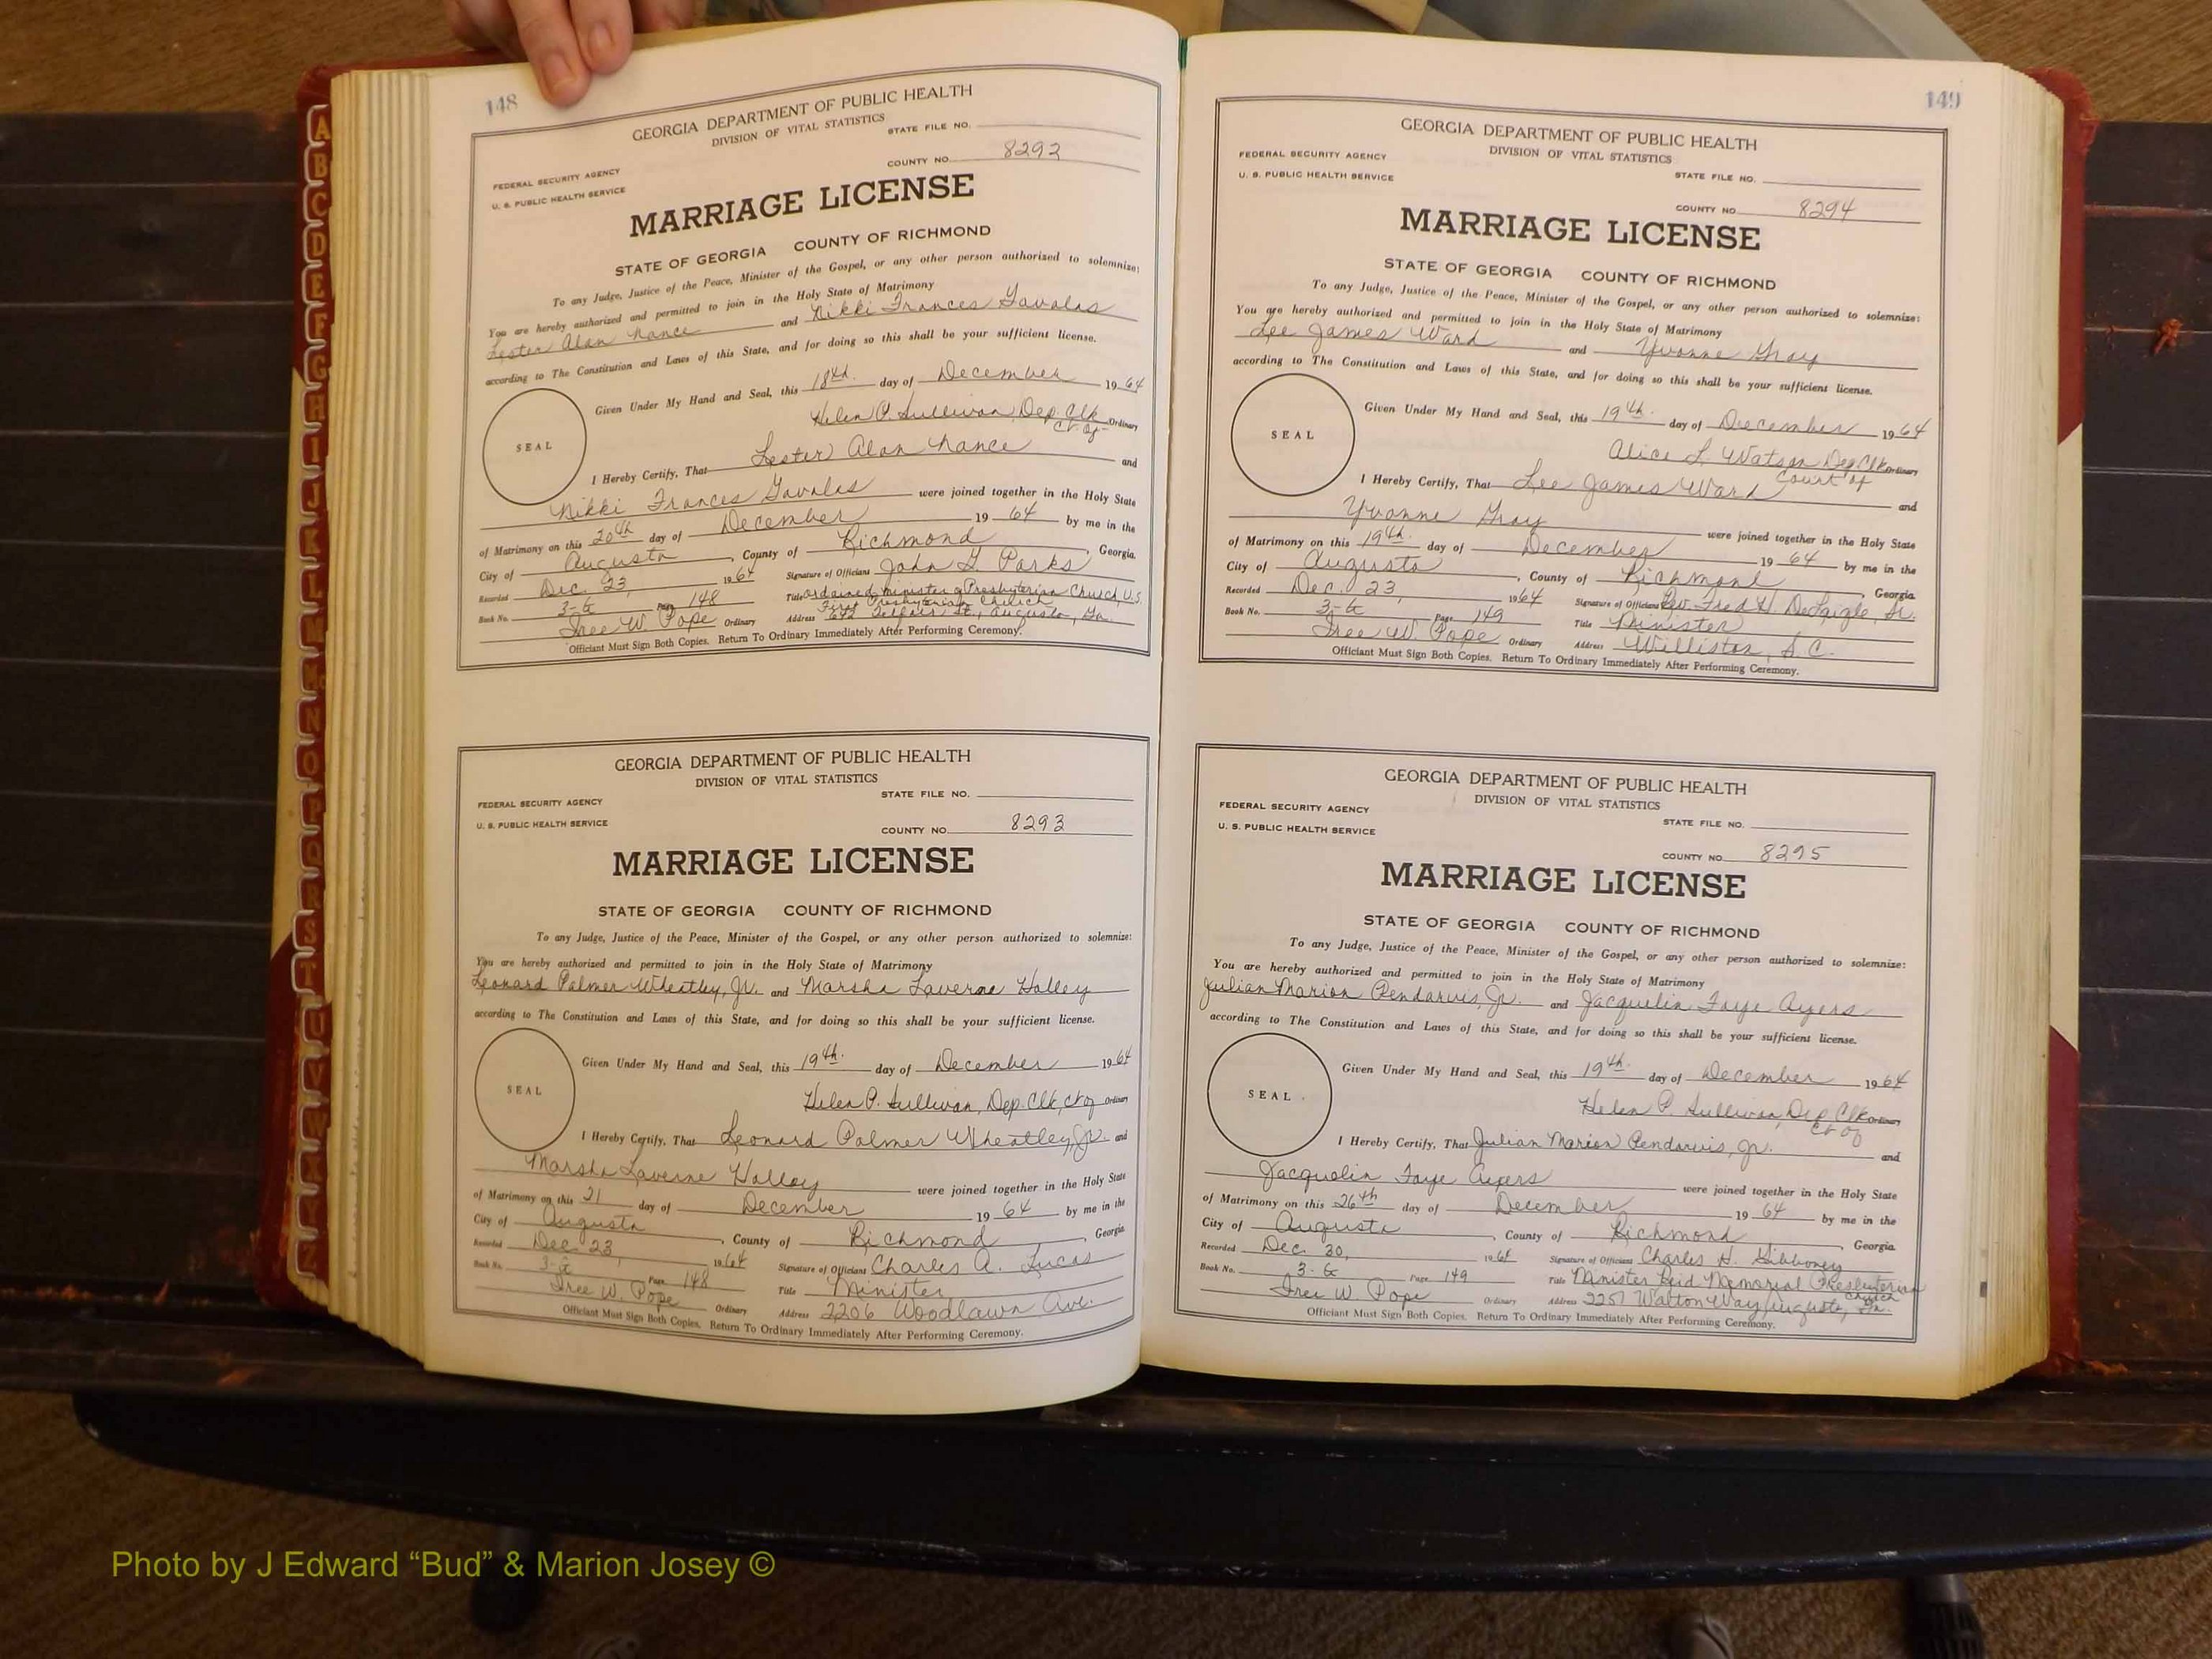 148
GEORGIA DEPARTMENT OF PUBLIC HEALTH
DIVISION OF VITAL STATISTICS
STATE FILE NO.
COUNTY NO. 8292
FEDERAL SECURITY AGENCY
U. S. PUBLIC HEALTH SERVICE
MARRIAGE LICENSE
STATE OF GEORGIA COUNTY OF RICHMOND
To any Judge, Justice of the Peace, Minister of the Gospel, or any other person authorized to solemnize:
You are hereby authorized and permitted to join in the Holy State of Matrimony
Lester Alan Nance and Nikki Frances Gavalas
according to The Constitution and Laws of this State, and for doing so this shall be your sufficient license.
Given Under My Hand and Seal, this 18th. day of December 1964
Helen P. Sullivan, Dep. Clk Ordinary
Ct. of
SEAL
I Hereby Certify, That Lester Alan Nance and
Nikki Frances Gavalas were joined together in the Holy State
of Matrimony on this 20th day of December 1964 by me in the
City of Augusta, County of Richmond, Georgia.
Recorded Dec. 23, 1964 Signature of Officiant John G Parks
Book No. 3-G Page 148 Title ordained minister of Presbyterian Church, U.S.
First Presbyterian Church
Iree W. Pope Ordinary Address 642 Telfair St., Augusta, Ga.
Officiant Must Sign Both Copies. Return To Ordinary Immediately After Performing Ceremony.
GEORGIA DEPARTMENT OF PUBLIC HEALTH
DIVISION OF VITAL STATISTICS
STATE FILE NO.
FEDERAL SECURITY AGENCY
U. S. PUBLIC HEALTH SERVICE
COUNTY NO. 8293
MARRIAGE LICENSE
STATE OF GEORGIA COUNTY OF RICHMOND
To any Judge, Justice of the Peace, Minister of the Gospel, or any other person authorized to solemnize:
You are hereby authorized and permitted to join in the Holy State of Matrimony
Leonard Palmer Wheatley, Jr. and Marsha Laverne Holley
according to The Constitution and Laws of this State, and for doing so this shall be your sufficient license.
Given Under My Hand and Seal, this 19th. day of December 1964
Helen P. Sullivan, Dep. Clk, Ct of Ordinary
SEAL
I Hereby Certify, That Leonard Palmer Wheatley, Jr. and
Marsha Laverne Holley were joined together in the Holy State
of Matrimony on this 21 day of December 1964 by me in the
City of Augusta, County of Richmond, Georgia
Recorded Dec. 23, 1964 Signature of Officiant Charles A. Lucas
Book No. 3-G Page 148 Title Minister
Iree W. Pope Ordinary Address 2206 Woodlawn Ave.
Officiant Must Sign Both Copies. Return To Ordinary Immediately After Performing Ceremony.
149
GEORGIA DEPARTMENT OF PUBLIC HEALTH
DIVISION OF VITAL STATISTICS
FEDERAL SECURITY AGENCY
U. S. PUBLIC HEALTH SERVICE
STATE FILE NO.
COUNTY NO. 8294
MARRIAGE LICENSE
STATE OF GEORGIA COUNTY OF RICHMOND
To any Judge, Justice of the Peace, Minister of the Gospel, or any other person authorized to solemnize:
You are hereby authorized and permitted to join in the Holy State of Matrimony
Lee James Ward and Yvonne Gray
according to The Constitution and Laws of this State, and for doing so this shall be your sufficient license.
Given Under My Hand and Seal, this 19th. day of December 1964
Alice L. Watson Dep Clk Ordinary
Court of
SEAL
I Hereby Certify, That Lee James Ward and
Yvonne Gray were joined together in the Holy State
of Matrimony on this 19th. day of December 1964 by me in the
City of Augusta, County of Richmond, Georgia
Recorded Dec. 23, 1964 Signature of Officiant Rev. Fred H. DeLaigle, Sr.
Book No. 3-G Page 149 Title Minister
Iree W. Pope Ordinary Address Williston, S.C.
Officiant Must Sign Both Copies. Return To Ordinary Immediately After Performing Ceremony.
GEORGIA DEPARTMENT OF PUBLIC HEALTH
DIVISION OF VITAL STATISTICS
FEDERAL SECURITY AGENCY
U. S. PUBLIC HEALTH SERVICE
STATE FILE NO.
COUNTY NO. 8295
MARRIAGE LICENSE
STATE OF GEORGIA COUNTY OF RICHMOND
To any Judge, Justice of the Peace, Minister of the Gospel, or any other person authorized to solemnize:
You are hereby authorized and permitted to join in the Holy State of Matrimony
Julian Marion Pendarvis, Jr. and Jacquelin Faye Ayers
according to The Constitution and Laws of this State, and for doing so this shall be your sufficient license.
Given Under My Hand and Seal, this 19th. day of December 1964
Helen P. Sullivan, Dep Clk Ordinary
Ct of
SEAL
I Hereby Certify, That Julian Marion Pendarvis, Jr. and
Jacquelin Faye Ayers were joined together in the Holy State
of Matrimony on this 26th day of December 1964 by me in the
City of Augusta, County of Richmond, Georgia
Recorded Dec. 30, 1964 Signature of Officiant Charles H. Gibboney
Book No. 3-G Page 149 Title Minister Reid Memorial Presbyterian
Church
Iree W. Pope Ordinary Address 2257 Walton Way, Augusta, Ga.
Officiant Must Sign Both Copies. Return To Ordinary Immediately After Performing Ceremony.
A
B
C
D
E
F
G
H
I
J
K
L
M
Mc
N
O
P
Q
R
S
T
U
V
W
X
Y
Z
Photo by J Edward “Bud” & Marion Josey ©